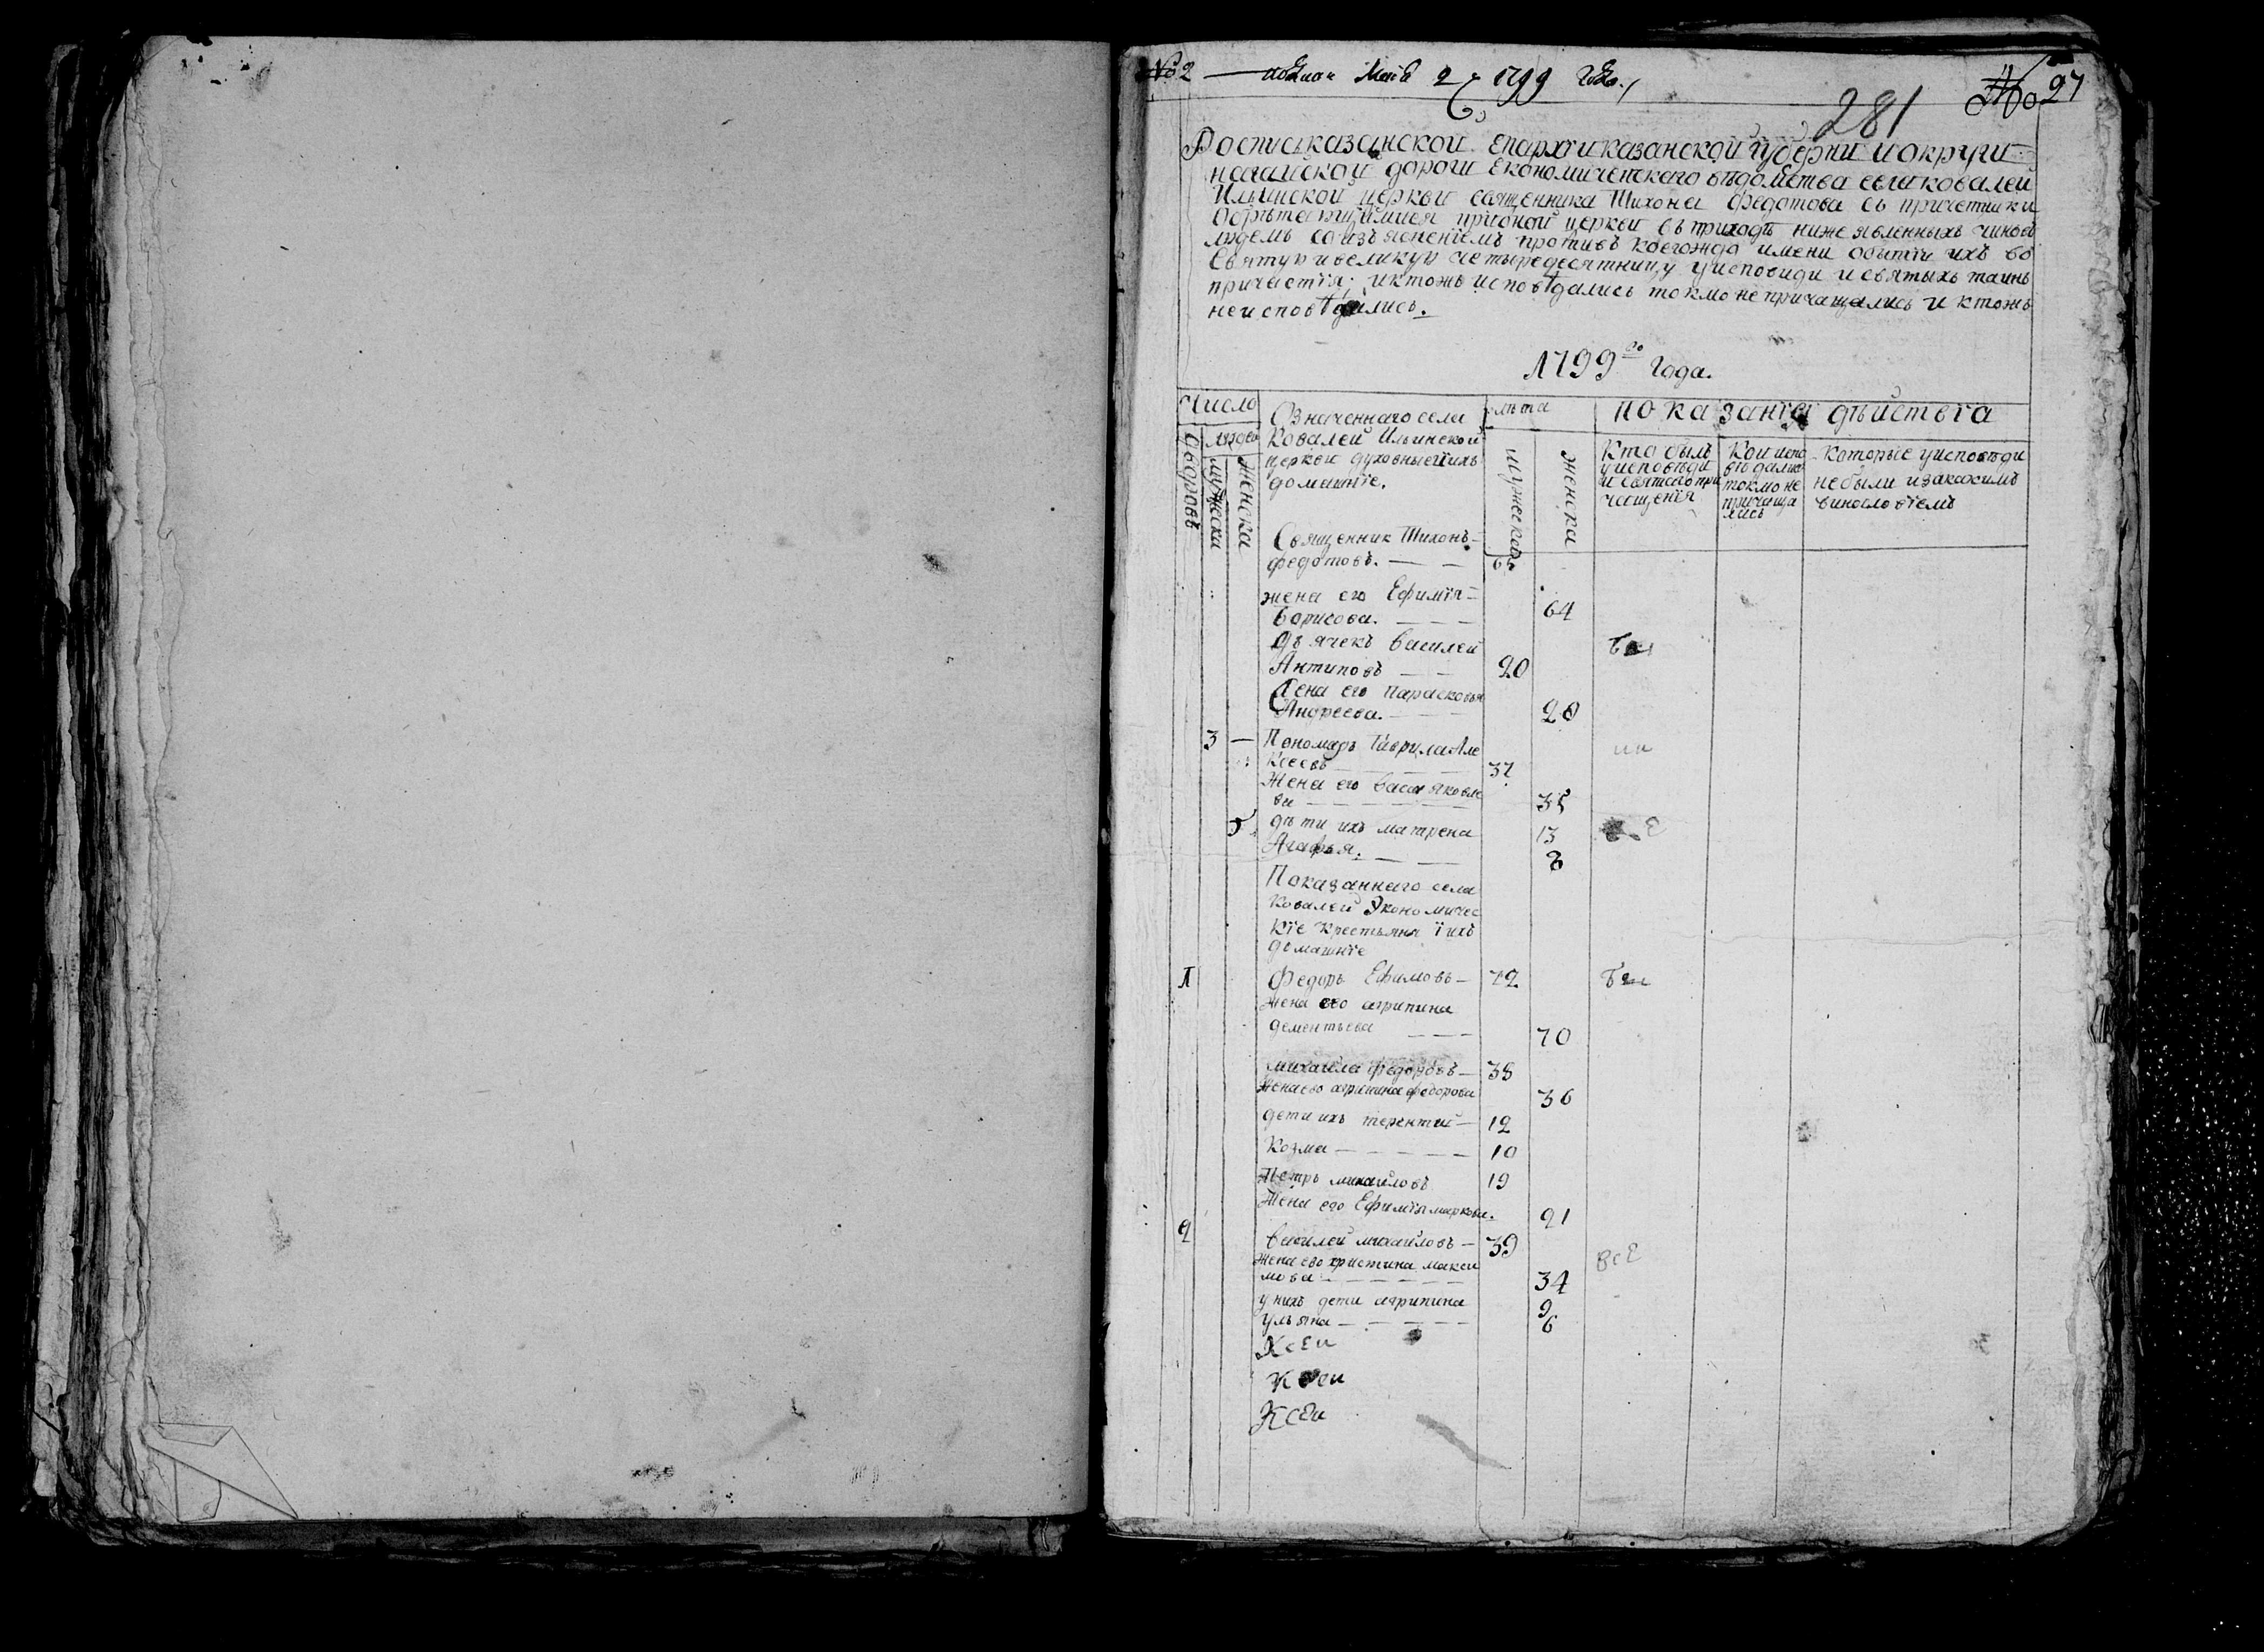 № 2 — Маіа 2 1799 года
281
№ 27
Роспись казанской епархіи казанской губерніи и округи
нагайской дороги Економическаго вѣдомства села ковалей
Ильинской церкви священника Тихона федотова съ причетники
обрѣтающимися при оной церкви въ приходѣ нижеявленныхъ чиновъ
людемъ со изъясненіемъ противъ коегождо имени о бытіи ихъ во
Святую и великую четыредесятницу у исповиди и святыхъ таинъ
причастія; и ктожъ исповѣдались токмо не причащались и ктожъ
неисповѣдались.
1799го Года.
Число
Людей
Дворовъ
Мужеска
Женска
Означеннаго села
Ковалей Ильинской
церкви духовные і ихъ
домашніе.
лѣта
мужеска
женска
показанія дѣйства
Кто былъ
у исповѣди
и святаго при
чащенія
Кои испо
вѣдались
токмо не
причаща
лись
Которые у исповѣди
не были и за какимъ
винословіемъ
Священник Тихонъ
федотовъ. — — 66
жена его Ефимія
борисова. — — — 64
Дьячекъ Василей
Антиповъ — — 20
Жена его Парасковья
Андреева. — — 20
3 — Пономарь Гаврила Але
ксеевъ — 37
Жена его Васа яковле
ва — 35
5 дѣти ихъ матрена 13
Агафья. — — 8
Показаннаго села
Ковалей Экономичес
кіе Крестьяня і ихъ
домашніе
1 Федоръ Ефимовъ — 72
жена его агрипина
дементьева — — — 70
михаила федоровъ — 38
жена его агрипина федорова 36
дети ихъ терентий — 12
Козма — — — — — 10
Петръ михайловъ 19
Жена его Ефимія маркова. 21
2 Василей михайловъ — 39 всЕ
жена его христина макси
мова — — — — — 34
у нихъ дети агрипина 9
ульяна — — — — — 6
КсЕи
Ксеи
КсЕи